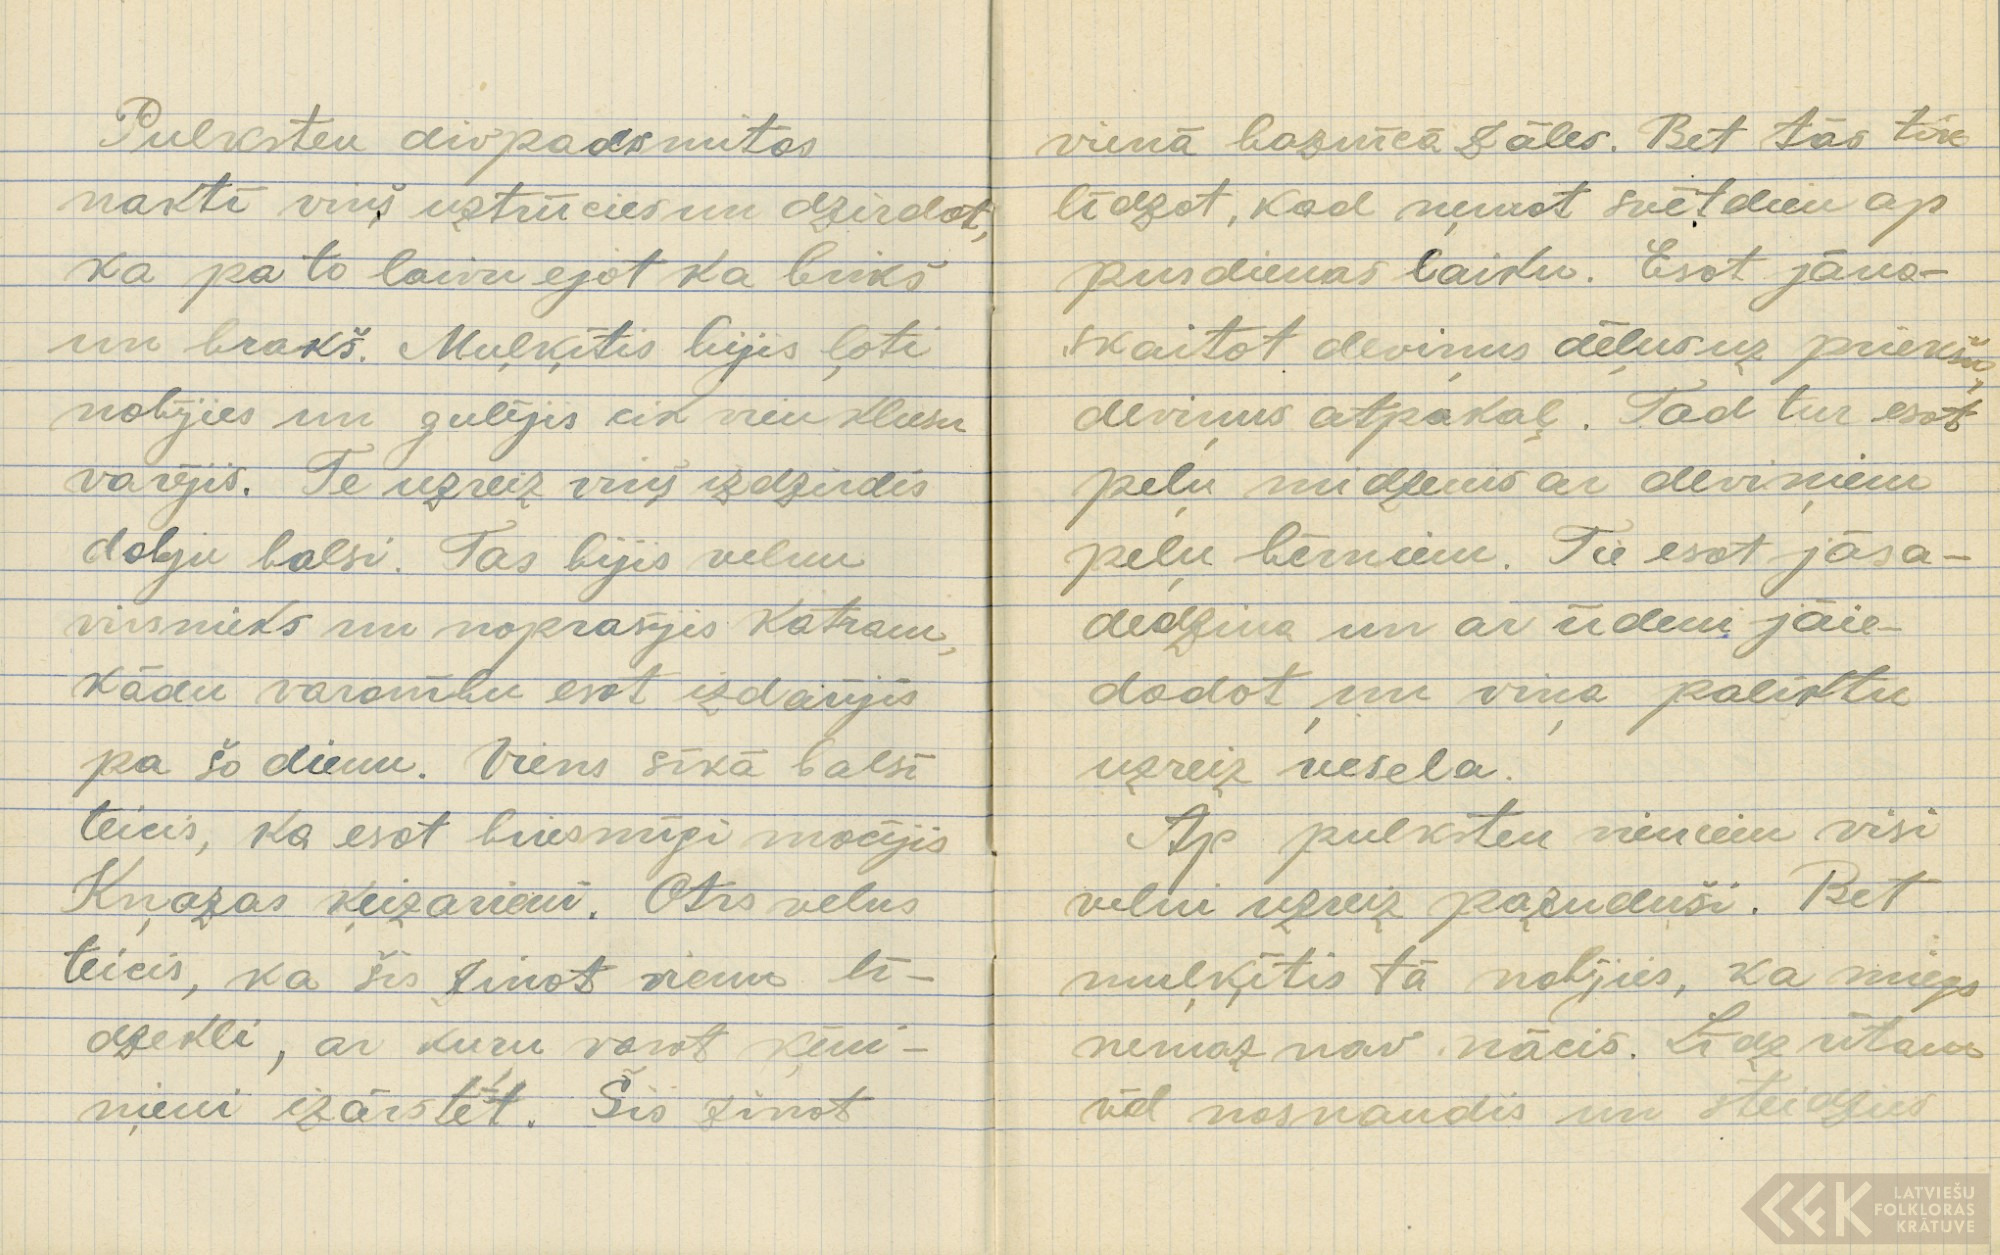 Pulksten divpadsmitos
naktī viņš uztrūcies un dzirdot,
ka pa to laivu ejot ka brikš
un brakš. Muļķītis bijis ļoti
nobijies un gulējis cik vien klusu
varējis. Te uzreiz viņš izdzirdis
dobju balsi. Tas bijis velnu
virsnieks un noprasījis katram,
kādu varombu esot izdarijis
pa šo dienu. Viens sīkā balsī
teicis, ka esot briesmīgi mocījis
Kņazas ķeizarieni. Otrs velns
teicis, ka šis zinot vienu lī-
dzekli, ar kuru varot ķēni-
ņieni izārstēt. Šis zinot
vienā baznīcā zāles. Bet tās tik
līdzot, kad ņemot svētdien ap
pusdienas laiku. Esot jāno-
skaitot deviņus dēļus uz priekšu,
deviņus atpakaļ. Tad tur esot
peļu midzenis ar deviņiem
peļu bērniem. Tie esot jāsa-
dedzina un ar ūdeni jāie-
dodot, un viņa paliktu
uzreiz vesela.
Ap pulksten vieniem visi
velni uzreiz pazuduši. Bet
muļķītis tā nobijies, ka miegs
nemaz nav nācis. Līdz rītam
vēl nosnaudis un steidzies
LATVIEŠU
FOLKLORAS
KRĀTUVE